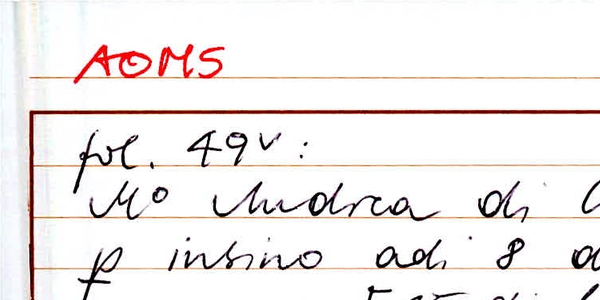 AOMS
fol. 49v:
Mo Andrea di
p insino adi 8